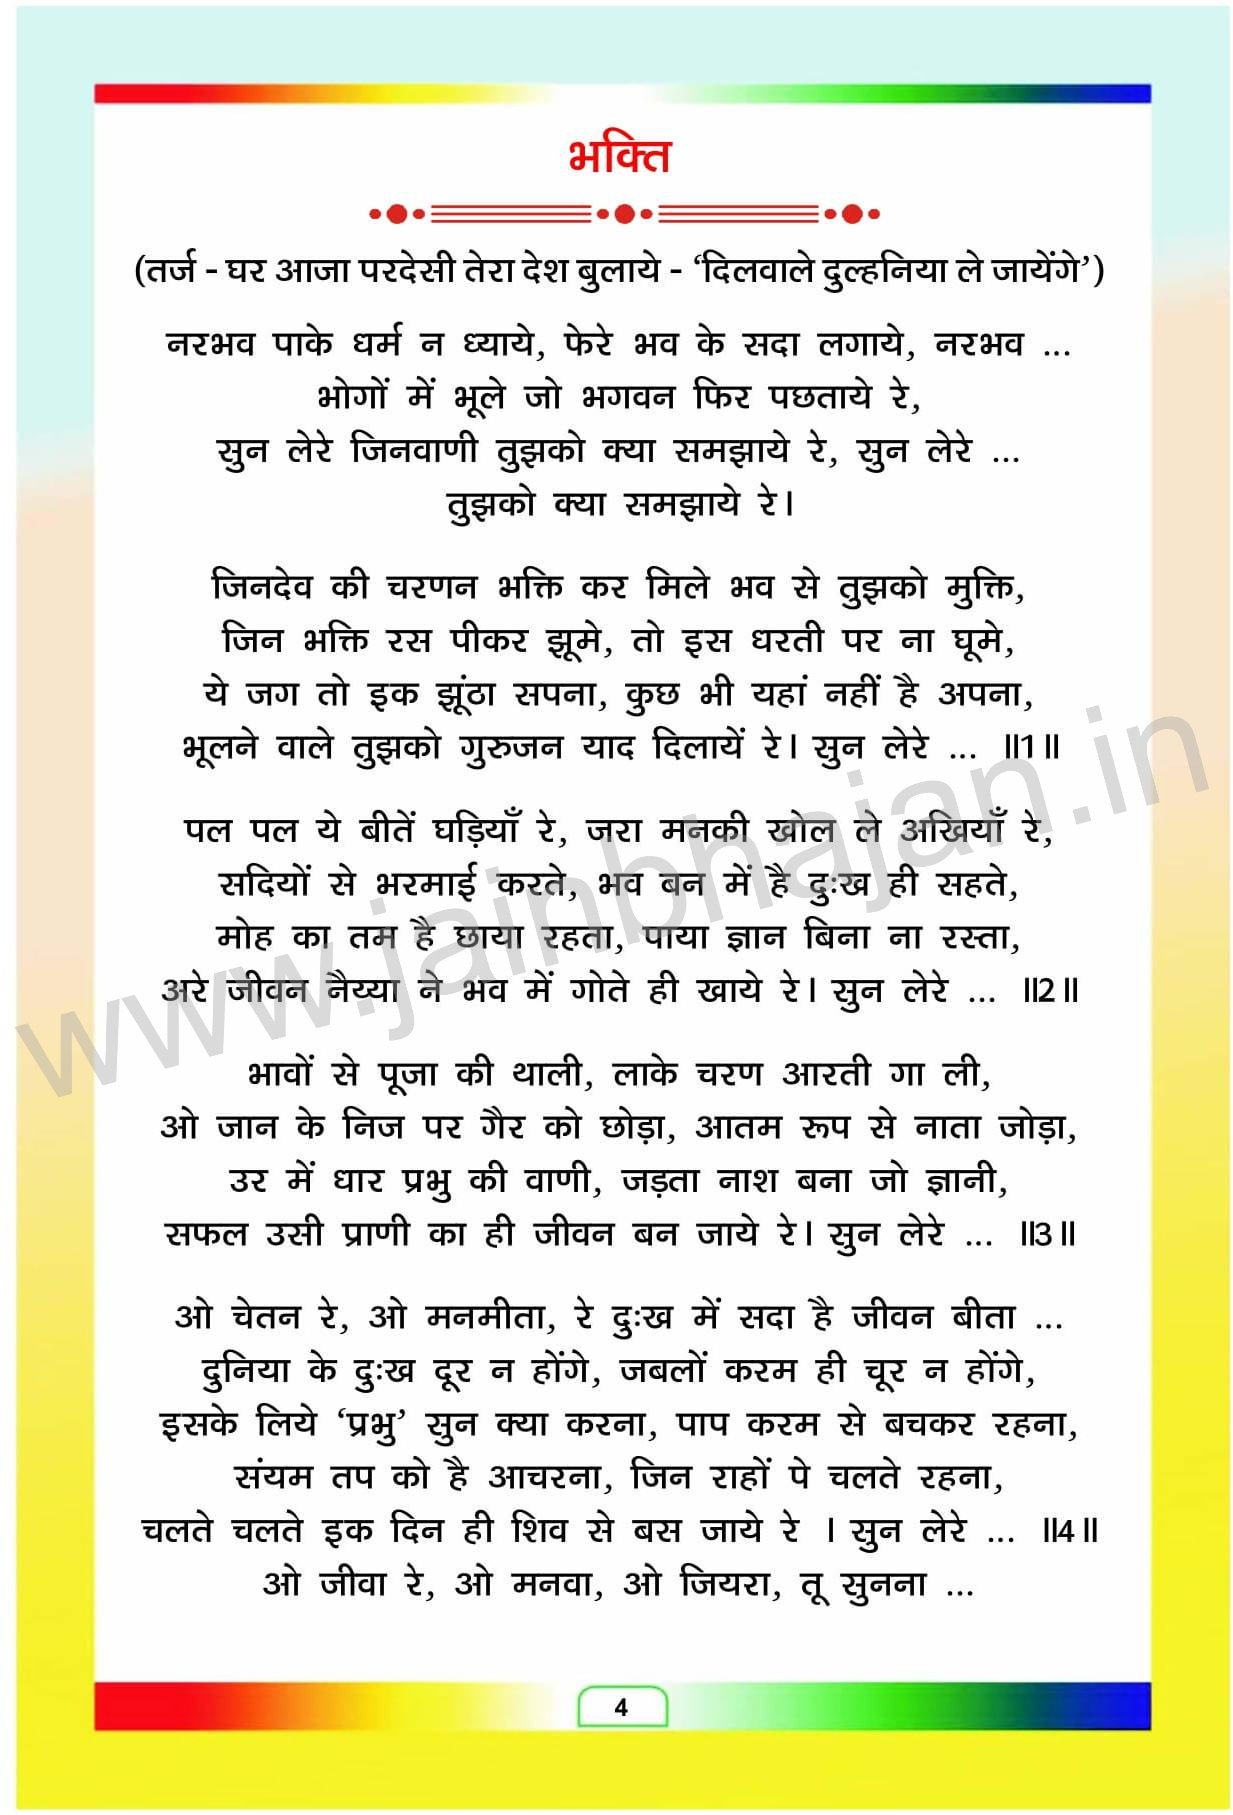 भक्ति
(तर्ज - घर आजा परदेसी तेरा देश बुलाये - ‘दिलवाले दुल्हनिया ले जायेंगे’)
नरभव पाके धर्म न ध्याये, फेरे भव के सदा लगाये, नरभव ...
भोगों में भूले जो भगवन फिर पछताये रे,
सुन लेरे जिनवाणी तुझको क्या समझाये रे, सुन लेरे ...
तुझको क्या समझाये रे।
जिनदेव की चरणन भक्ति कर मिले भव से तुझको मुक्ति,
जिन भक्ति रस पीकर झूमे, तो इस धरती पर ना घूमे,
ये जग तो इक झूंठा सपना, कुछ भी यहां नहीं है अपना,
भूलने वाले तुझको गुरुजन याद दिलायें रे। सुन लेरे ... ॥1॥
पल पल ये बीतें घड़ियाँ रे, जरा मनकी खोल ले अखियाँ रे,
सदियों से भरमाई करते, भव बन में है दुःख ही सहते,
मोह का तम है छाया रहता, पाया ज्ञान बिना ना रस्ता,
अरे जीवन नैय्या ने भव में गोते ही खाये रे। सुन लेरे ... ॥2॥
भावों से पूजा की थाली, लाके चरण आरती गा ली,
ओ जान के निज पर गैर को छोड़ा, आतम रूप से नाता जोड़ा,
उर में धार प्रभु की वाणी, जड़ता नाश बना जो ज्ञानी,
सफल उसी प्राणी का ही जीवन बन जाये रे। सुन लेरे ... ॥3॥
ओ चेतन रे, ओ मनमीता, रे दुःख में सदा है जीवन बीता ...
दुनिया के दुःख दूर न होंगे, जबलों करम ही चूर न होंगे,
इसके लिये ‘प्रभु’ सुन क्या करना, पाप करम से बचकर रहना,
संयम तप को है आचरना, जिन राहों पे चलते रहना,
चलते चलते इक दिन ही शिव से बस जाये रे । सुन लेरे ... ॥4॥
ओ जीवा रे, ओ मनवा, ओ जियरा, तू सुनना ...
4
www.jainbhajan.in